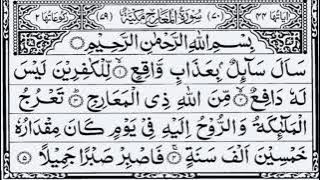 اٰیَاتُهَا ٤٤ (٧٠) سُوْرَةُ الْمَعَارِجِ مَكِّيَّةٌ (٧٩) رُكُوْعَاتُهَا ٢
بِسْمِ اللّٰهِ الرَّحْمٰنِ الرَّحِيْمِ
سَاَلَ سَآئِلٌۢ بِعَذَابٍ وَّاقِعٍ ۙ‏﴿١﴾ لِّلْكٰفِرِيْنَ لَيْسَ
لَهٗ دَافِعٌ ۙ‏﴿٢﴾ مِّنَ اللّٰهِ ذِى الْمَعَارِجِ ؕ‏﴿٣﴾ تَعْرُجُ
الْمَلٰٓئِكَةُ وَالرُّوْحُ اِلَيْهِ فِىْ يَوْمٍ كَانَ مِقْدَارُهٗ
خَمْسِيْنَ اَلْفَ سَنَةٍ ۚ‏﴿٤﴾ فَاصْبِرْ صَبْرًا جَمِيْلًا ﴿٥﴾